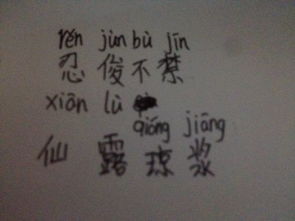 rěn jùn bù jīn
忍俊不禁
xiān lù
qióng jiāng
仙露琼浆